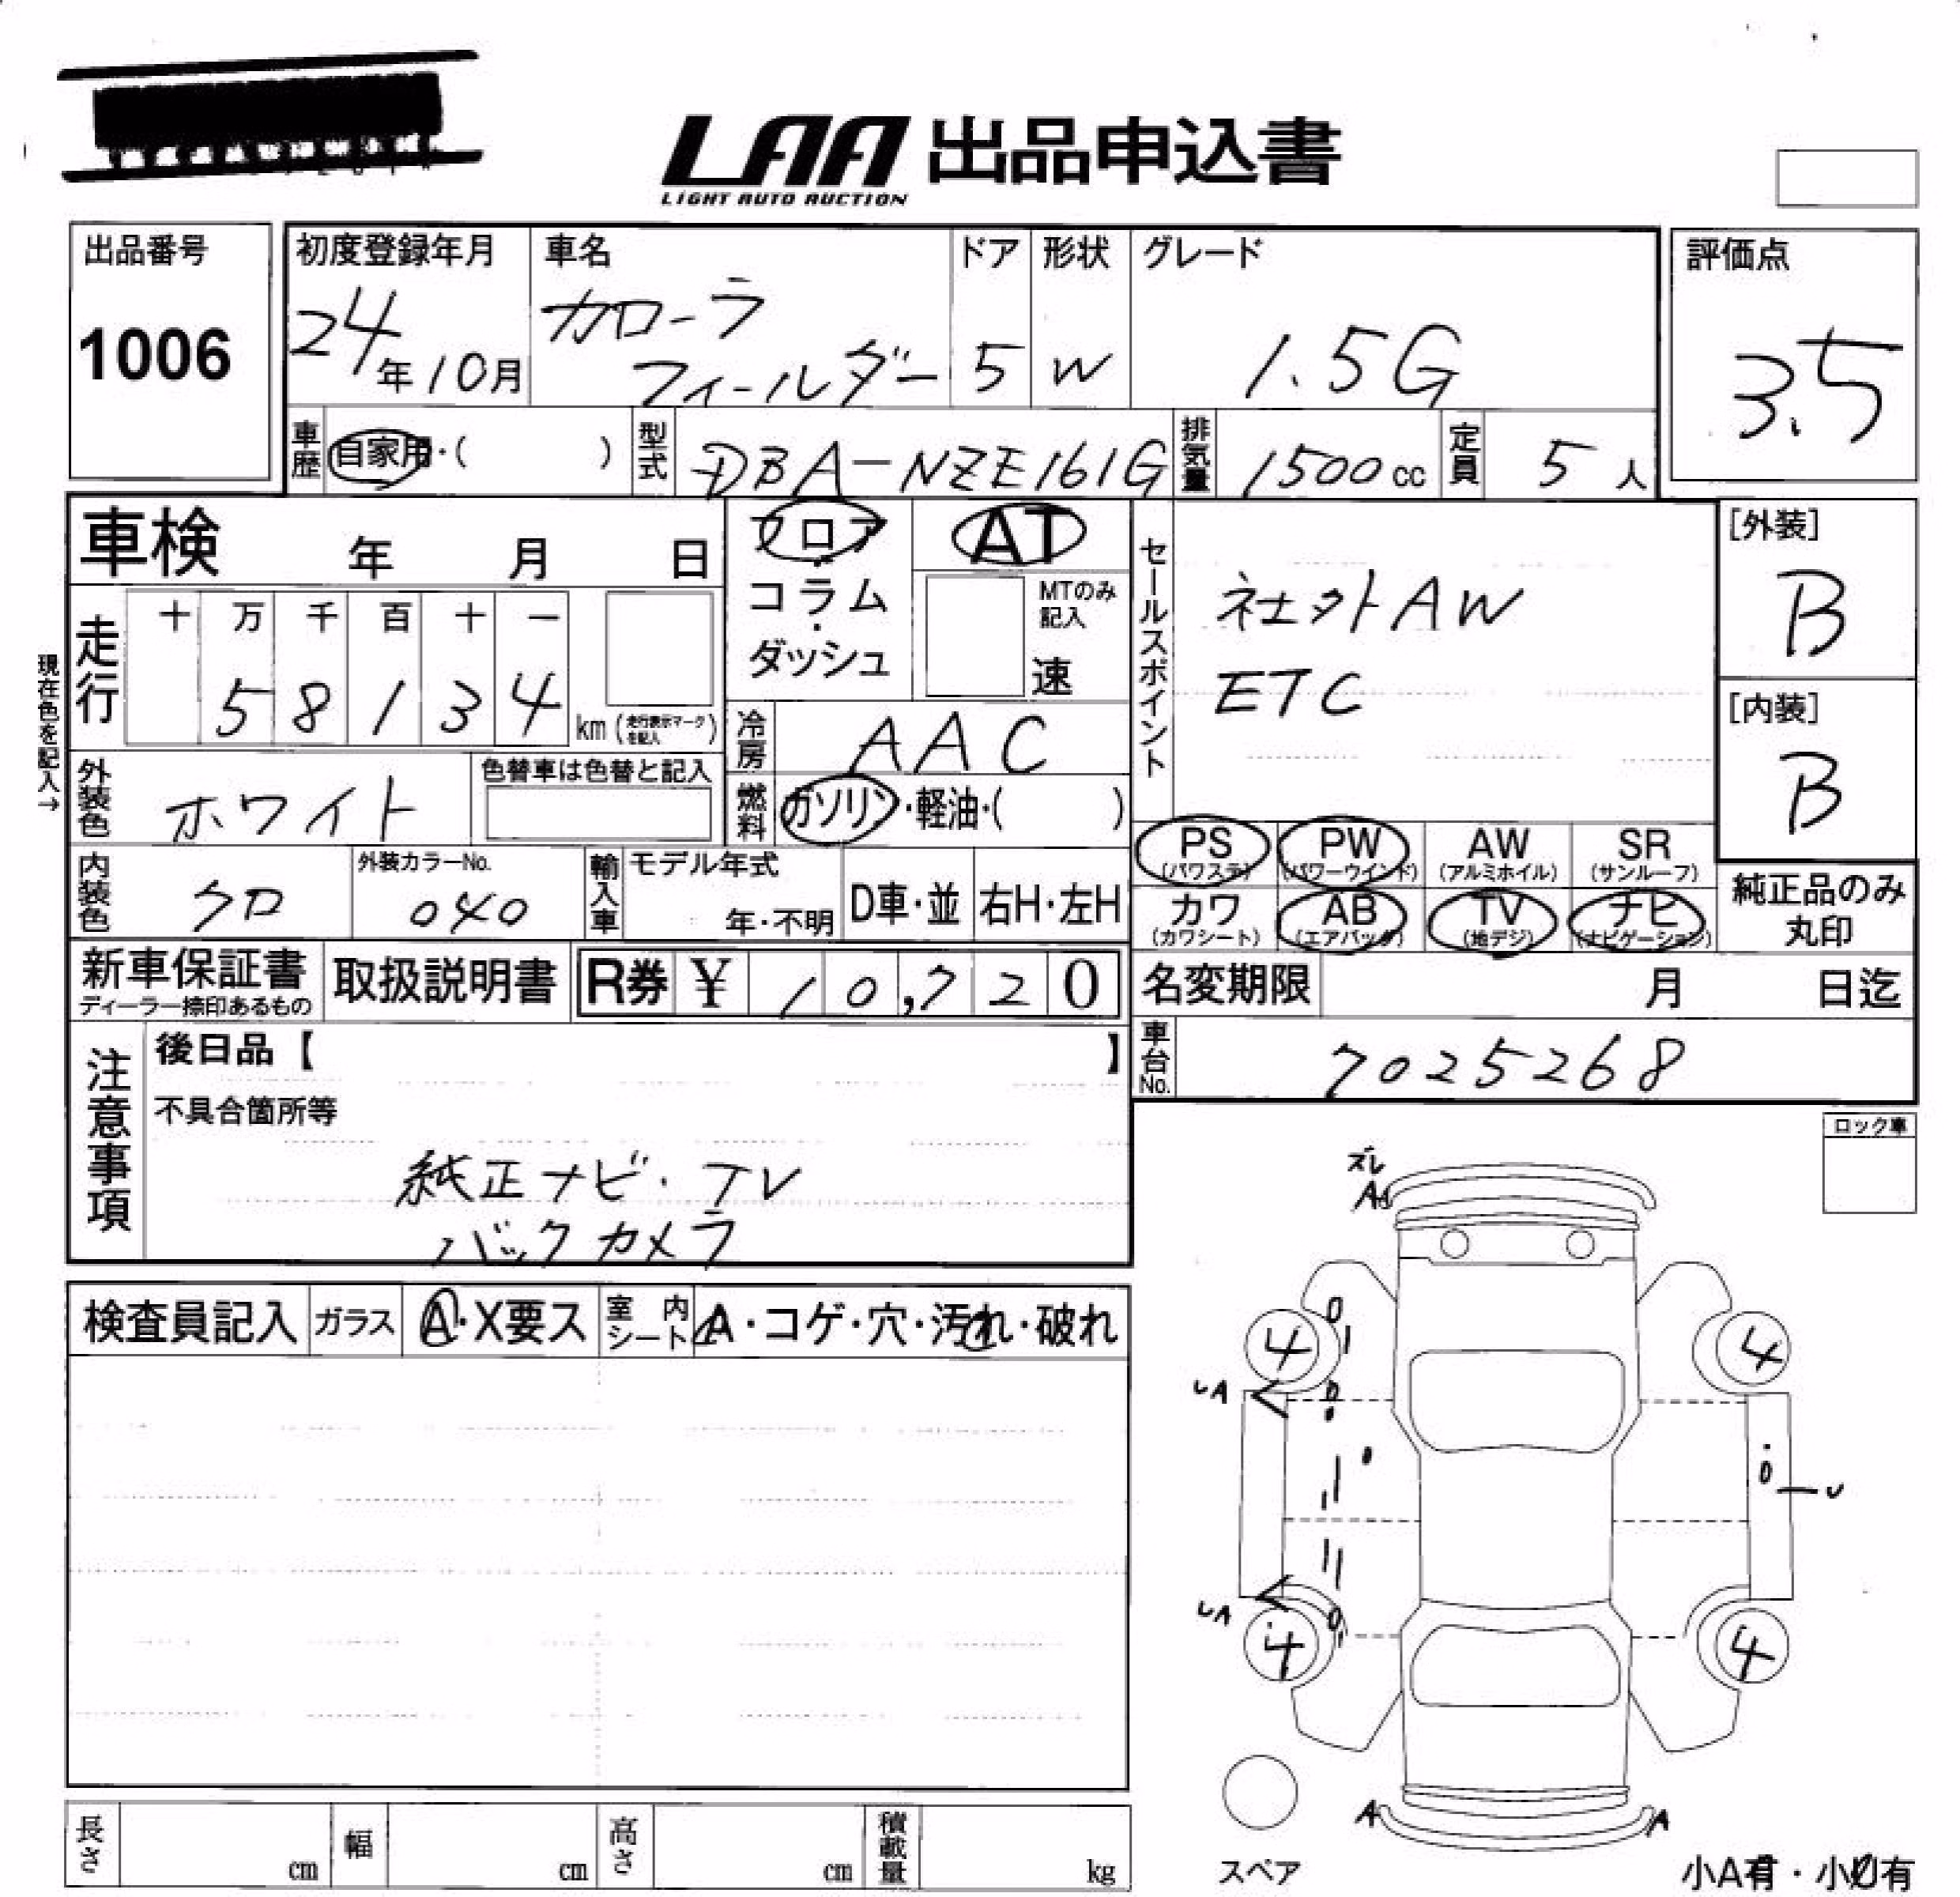 LAA 出品申込書
LIGHT AUTO AUCTION
出品番号
1006
初度登録年月
24年10月
車名
カローラ
フィールダー
ドア
5
形状
W
グレード
1.5G
評価点
3.5
車歴
自家用・( )
型式
DBA-NZE161G
排気量
1500cc
定員
5人
車検 年 月 日
フロア
・
コラム
・
ダッシュ
AT
MTのみ
記入
速
セールスポイント
社外AW
ETC
[外装]
B
[内装]
B
現在色を記入→
走行
十 万 千 百 十 一
5 8 1 3 4
km(走行表示マークを記入)
冷房
AAC
外装色
ホワイト
色替車は色替と記入
燃料
ガソリン・軽油・( )
PS
(パワステ)
PW
(パワーウインド)
AW
(アルミホイル)
SR
(サンルーフ)
内装色
クロ
外装カラーNo.
040
輸入車
モデル年式
年・不明
D車・並
右H・左H
カワ
(カワシート)
AB
(エアバック)
TV
(地デジ)
ナビ
(ナビゲーション)
純正品のみ
丸印
新車保証書
ディーラー捺印あるもの
取扱説明書
R券 ¥ 10,720
名変期限 月 日迄
車台No.
7025268
注意事項
後日品【 】
不具合箇所等
純正ナビ・TV
バックカメラ
ロック車
検査員記入
ガラス
A・X要ス
室内
シート
A・コゲ・穴・汚れ・破れ
ズレ
A
4
4
UA
U
UA
4
4
A
A
スペア
長さ cm
幅 cm
高さ cm
積載量 kg
小A有・小U有